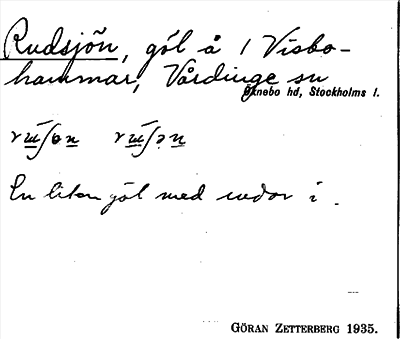 Rudsjön, göl å 1 Visbo-
hammar, Vårdinge sn
Öknebo hd, Stockholms l.
En liten göl med rudor i.
GÖRAN ZETTERBERG 1935.